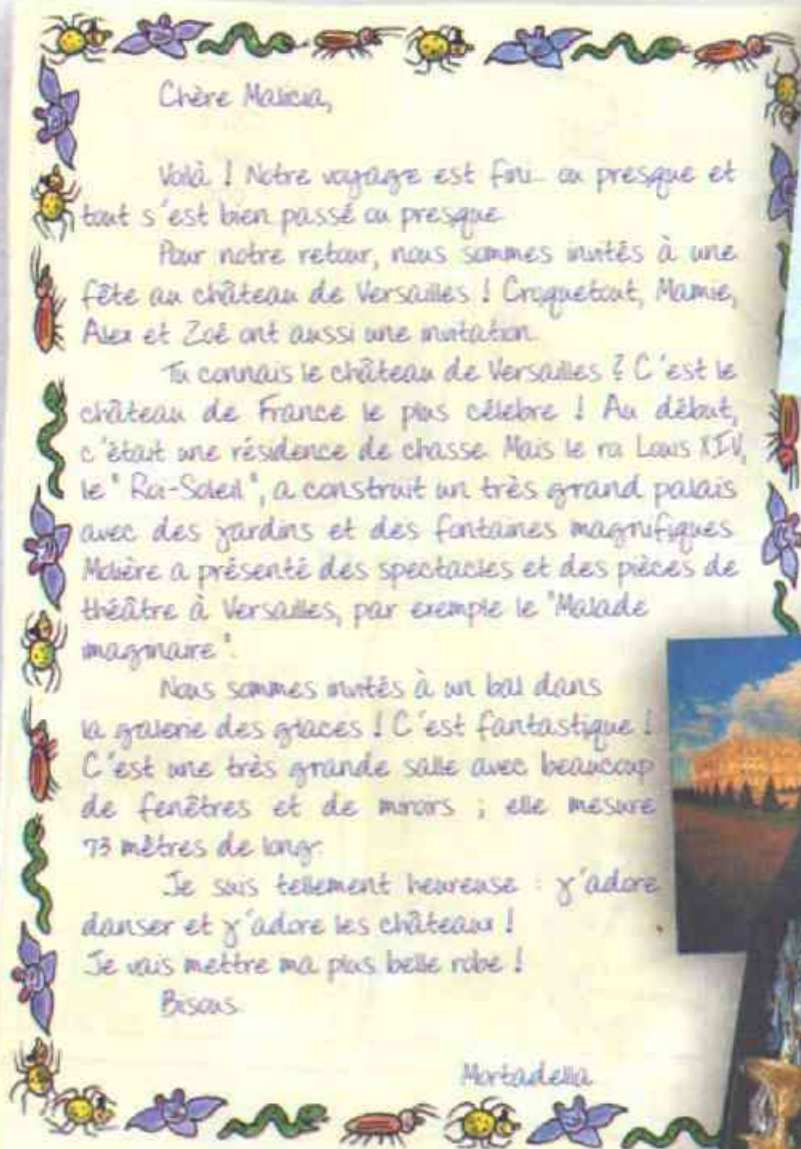 Chère Malicia,
Voilà ! Notre voyage est fini... ou presque et
tout s'est bien passé ou presque.
Pour notre retour, nous sommes invités à une
fête au château de Versailles ! Croquetout, Mamie,
Alex et Zoé ont aussi une invitation.
Tu connais le château de Versailles ? C'est le
château de France le plus célèbre ! Au début,
c'était une résidence de chasse. Mais le roi Louis XIV,
le "Roi-Soleil", a construit un très grand palais
avec des jardins et des fontaines magnifiques.
Molière a présenté des spectacles et des pièces de
théâtre à Versailles, par exemple le "Malade
imaginaire".
Nous sommes invités à un bal dans
la galerie des glaces ! C'est fantastique !
C'est une très grande salle avec beaucoup
de fenêtres et de miroirs ; elle mesure
73 mètres de long.
Je suis tellement heureuse : j'adore
danser et j'adore les châteaux !
Je vais mettre ma plus belle robe !
Bisous.
Mortadella